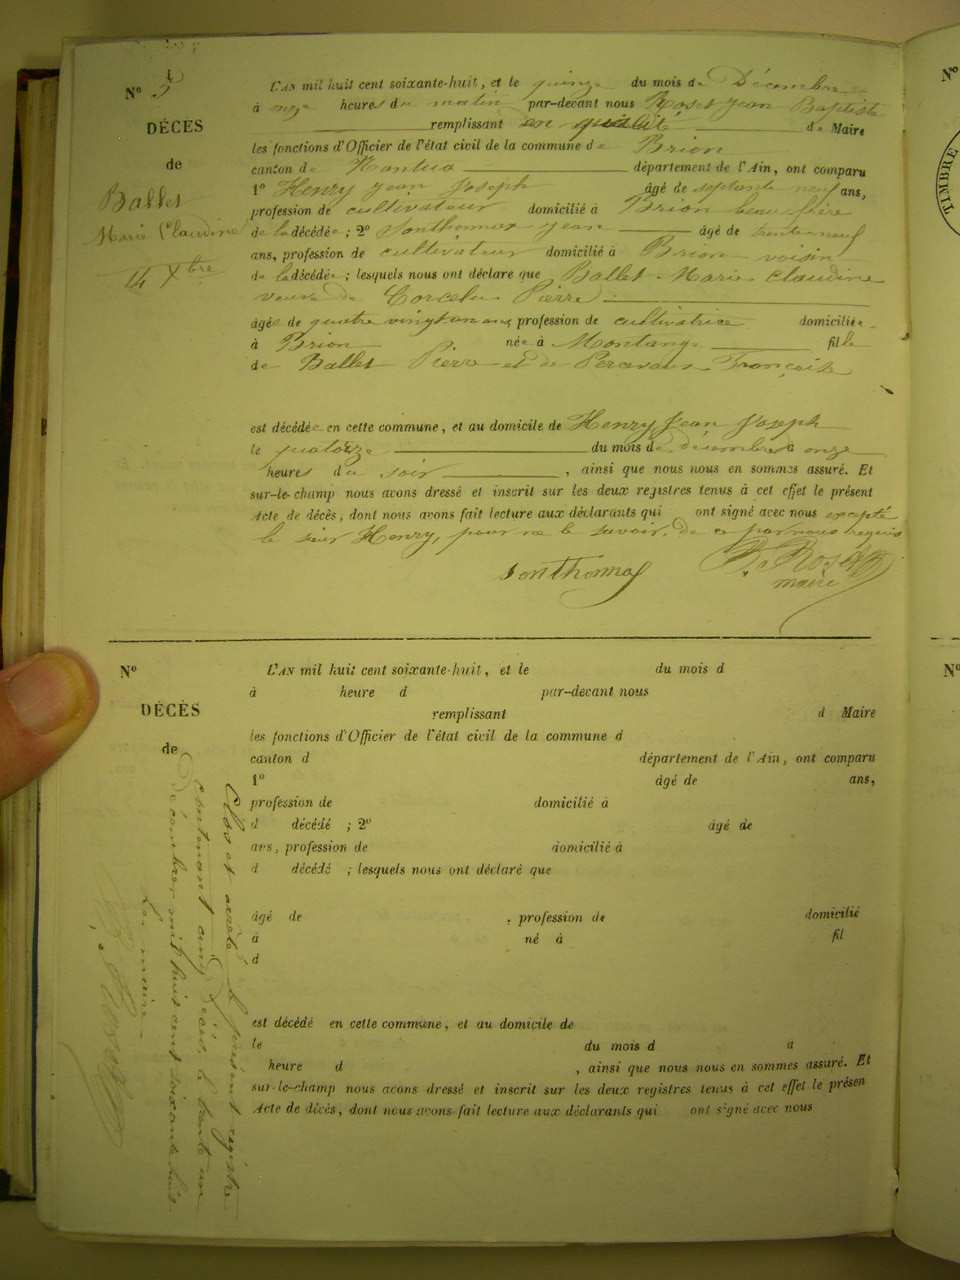 N° 5
DÉCÈS
de
Ballet
Marie Claudine
14 Xbre
L'AN mil huit cent soixante-huit, et le quinze du mois de Décembre
à onze heures du matin par-devant nous Roset Jean Baptiste
remplissant en qualité de Maire
les fonctions d'Officier de l'état civil de la commune de Brion
canton de Nantua département de l'Ain, ont comparu
1° Henry Jean Joseph âgé de septante neuf ans,
profession de cultivateur domicilié à Brion beau frère
de la décédée ; 2° Sonthonnas Jean âgé de trente neuf
ans, profession de cultivateur domicilié à Brion voisin
de la décédée ; lesquels nous ont déclaré que Ballet Marie Claudine
veuve de Corcelu Pierre
âgée de quatre vingt un ans profession de cultivatrice domiciliée
à Brion née à Montange fille
de Ballet Pierre et de Françoise
est décédée en cette commune, et au domicile de Henry Jean Joseph
le quatorze du mois de décembre à onze
heures du soir , ainsi que nous nous en sommes assuré. Et
sur-le-champ nous avons dressé et inscrit sur les deux registres tenus à cet effet le présent
Acte de décès, dont nous avons fait lecture aux déclarants qui ont signé avec nous excepté
le sieur Henry, pour ne le savoir, de ce par nous requis
Sonthonnas
Roset
maire
TIMBRE
N°
N°
N°
DÉCÈS
de
L'AN mil huit cent soixante-huit, et le du mois d
à heure d par-devant nous
remplissant d Maire
les fonctions d'Officier de l'état civil de la commune d
canton d département de l'Ain, ont comparu
1° âgé de ans,
profession de domicilié à
d décédé ; 2° âgé de
ans, profession de domicilié à
d décédé ; lesquels nous ont déclaré que
âgé de , profession de domicilié
à né à fil
d
est décédé en cette commune, et au domicile de
le du mois d à
heure d , ainsi que nous nous en sommes assuré. Et
sur-le-champ nous avons dressé et inscrit sur les deux registres tenus à cet effet le présen
Acte de décès, dont nous avons fait lecture aux déclarants qui ont signé avec nous
Clos et arrêté le présent registre
contenant cinq décès le trente un
décembre mil huit cent soixante huit
Le maire